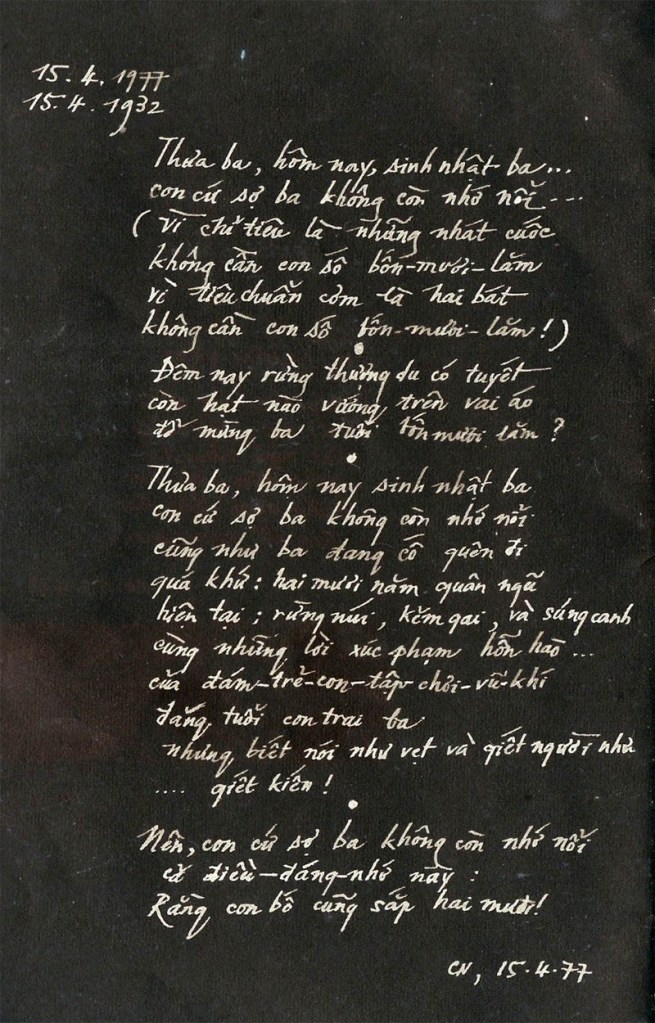 15.4.1977
15.4.1932
Thưa ba, hôm nay, sinh nhật ba...
con cứ sợ ba không còn nhớ nổi...
(Vì chỉ tiêu là những nhát cuốc
không cần con số bốn-mươi-lăm
vì tiêu chuẩn cơm là hai bát
không cần con số bốn-mươi-lăm!)
Đêm nay rừng thượng du có tuyết
còn hạt nào vướng trên vai áo
để mừng ba tuổi bốn mươi lăm?
Thưa ba, hôm nay sinh nhật ba
con cứ sợ ba không còn nhớ nổi
cũng như ba đang cố quên đi
quá khứ: hai mươi năm quân ngũ
hiện tại; rừng núi, kẽm gai, và súng canh
cùng những lời xúc phạm hỗn hào...
của đám-trẻ-con-tập chơi-vũ-khí
đáng tuổi con trai ba
nhưng biết nói như vẹt và giết người như
.... giết kiến!
Nên, con cứ sợ ba không còn nhớ nổi
cả điều-đáng-nhớ này:
Rằng con bố cũng sắp hai mươi!
CN, 15.4.77